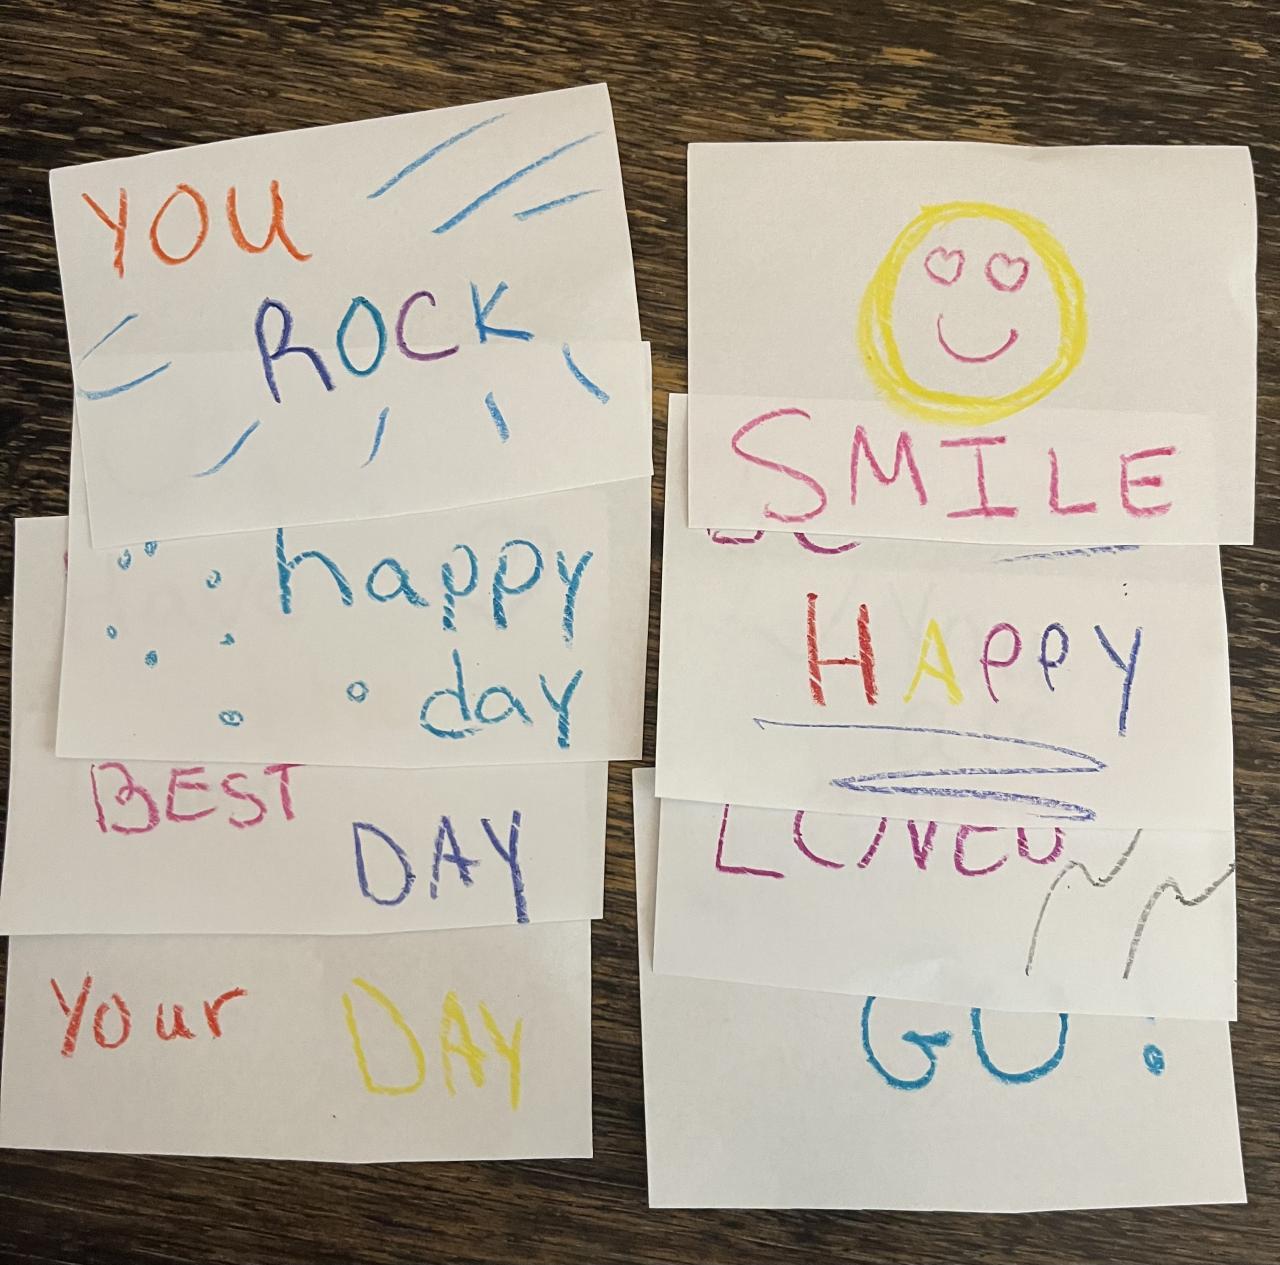 YOU
ROCK
happy
day
BEST
DAY
Your DAY
SMILE
HAPPY
LOVED
GO!